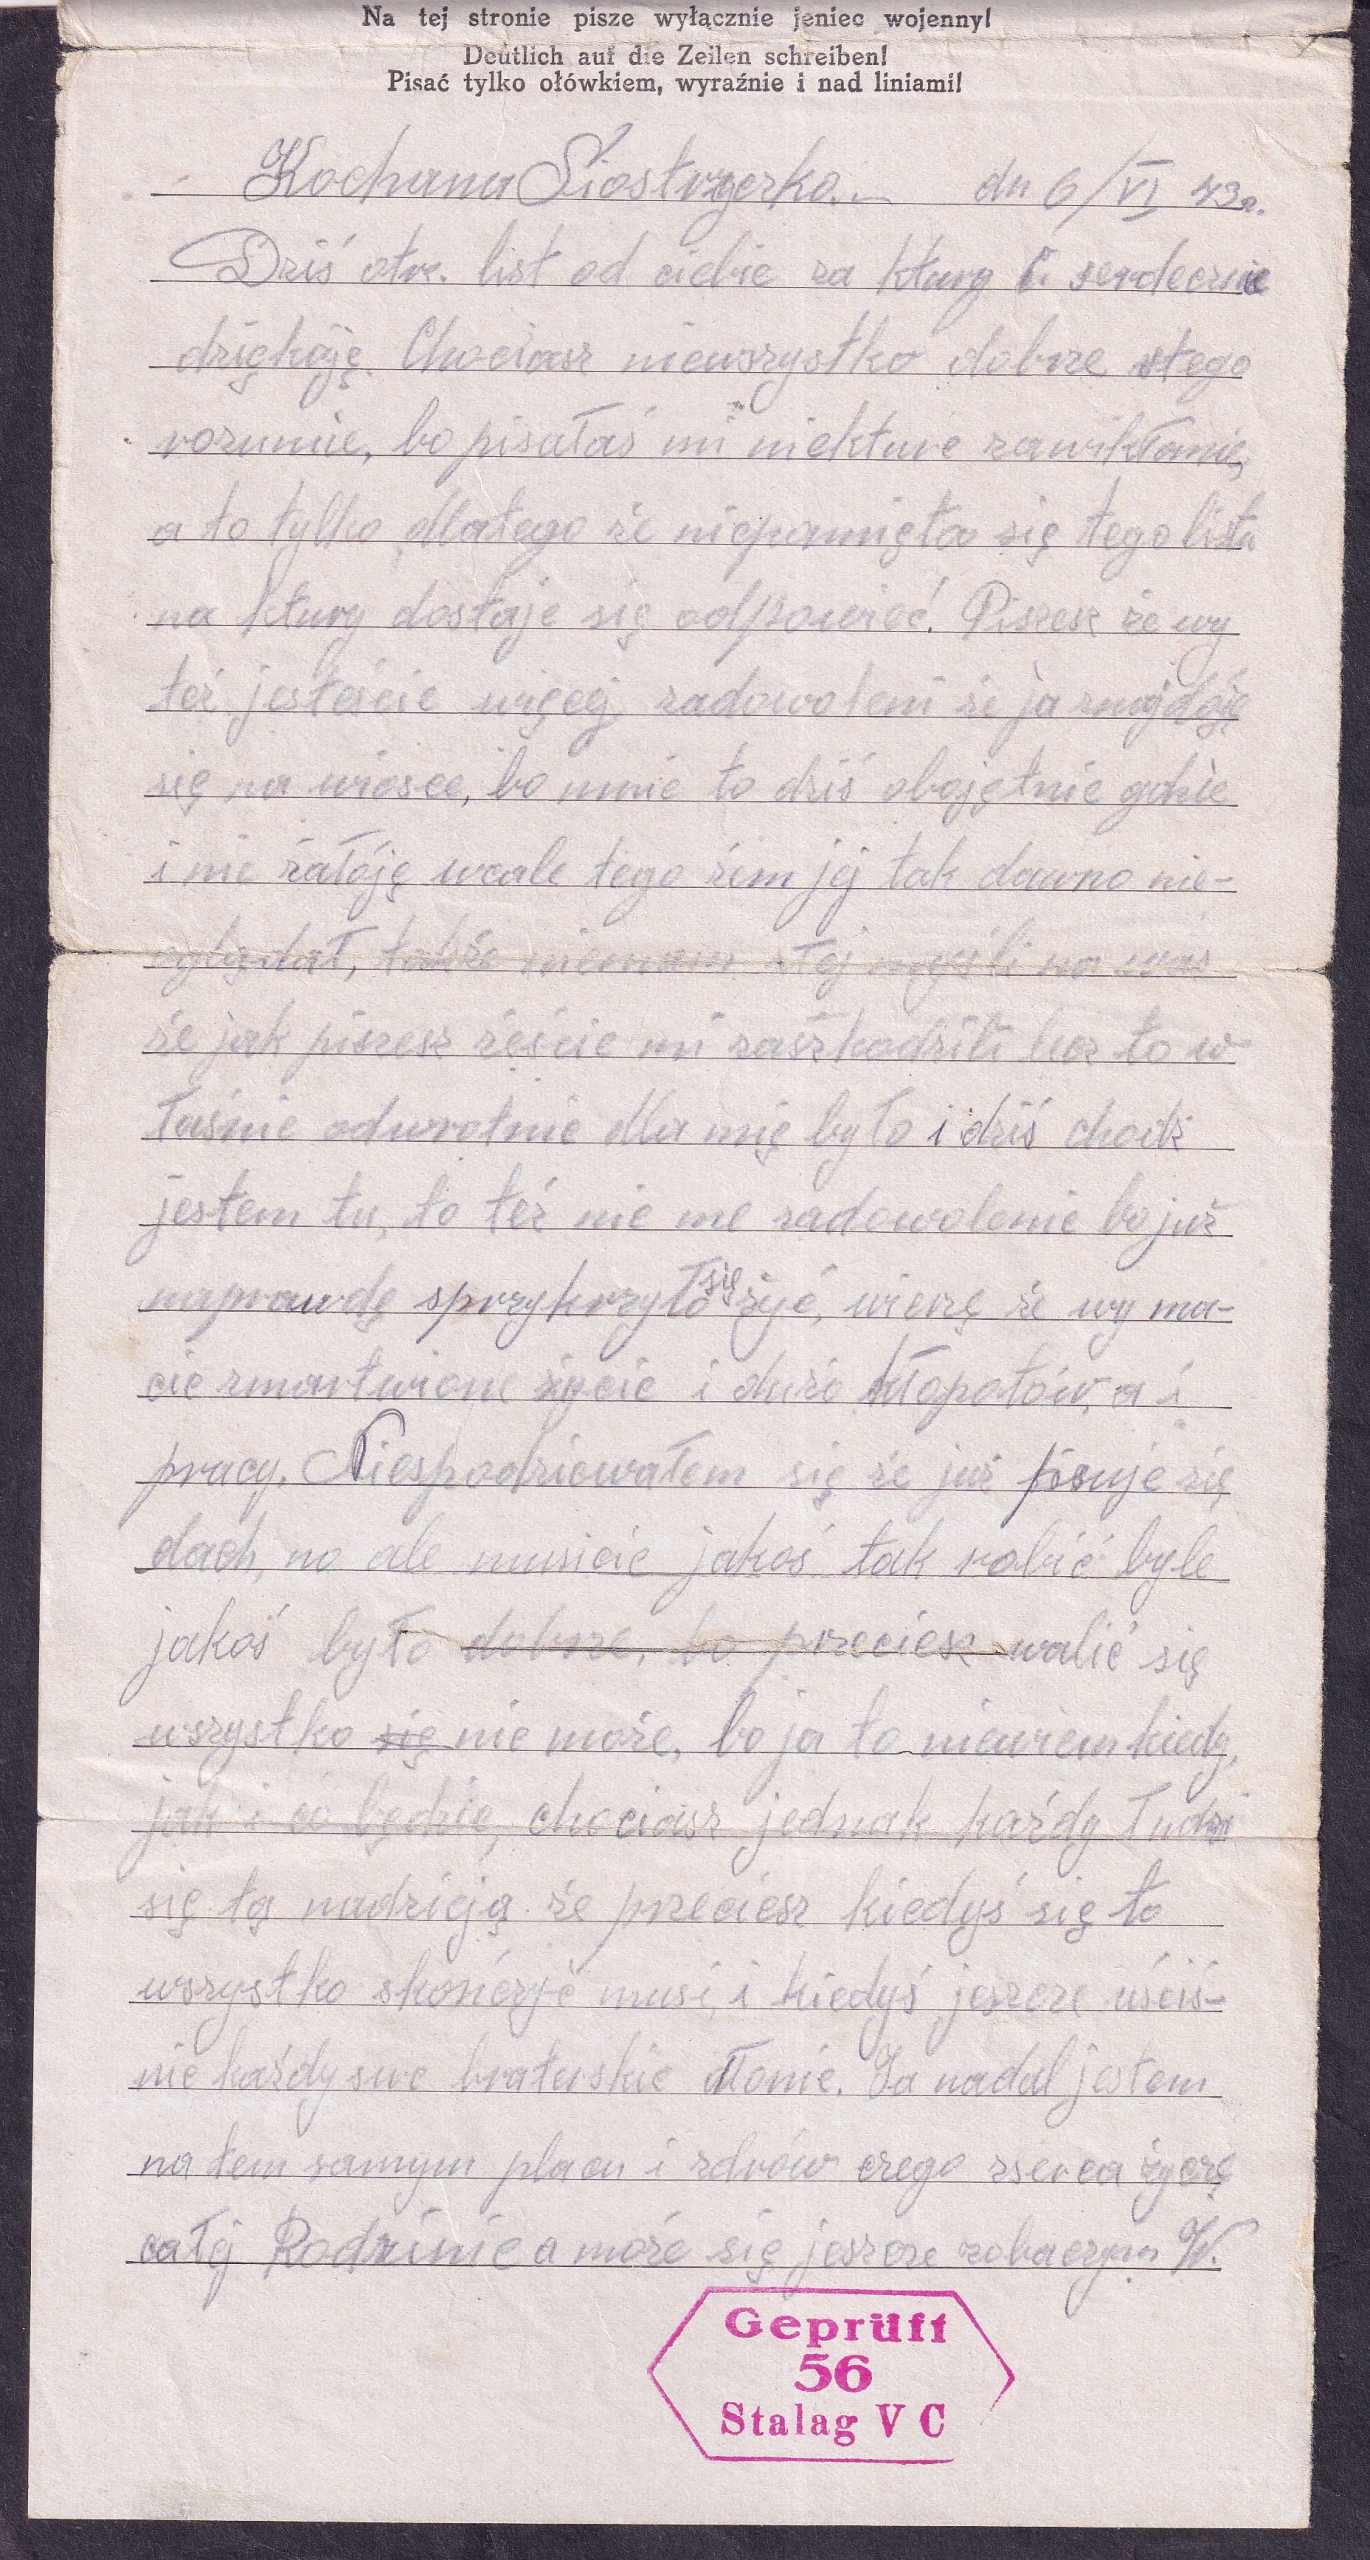 Na tej stronie pisze wyłącznie jeniec wojenny!
Deutlich auf die Zeilen schreiben!
Pisać tylko ołówkiem, wyraźnie i nad liniami!
Kochana Siostrzyczko. dn 6/VI 43r.
Dziś otrz. list od ciebie za ktury Ci serdecznie
dziękóję. Chociasz niewszystko dobrze stego
rozumie, bo pisałaś mi niekture zawikłanie,
a to tylko dlatego że niepamięta się tego listu
na ktury dostaje się odpowieć. Piszesz że wy
też jesteście więcej zadowoleni że ja znajdóję
się na wiosce, bo mnie to dziś obojętnie gdzie
i nie żałóję wcale tego żem jej tak dawno nie-
oglądał, także niemam tej myśli na was
że jak piszesz żeście mi zaszkodzili bo to w
łaśnie odwrotnie dla mię było i dziś chodź
jestem tu, to też nie me zadowolenie bo już
naprawdę sprzykrzyło się żyć, wierzę że wy ma-
cie zmartwione życie i dużo kłopotów, a i
pracy. Niespodziewałem się że już psuje się
dach, no ale musicie jakoś tak robić byle
jakoś było dobrze, bo przeciesz walić się
wszystko się nie może, bo ja to niewiem kiedy,
jak i co będzie, chociasz jednak każdy łudzi
się tą nadzieją że przeciesz kiedyś się to
wszystko skończyć musi, i kiedyś jeszcze uściś-
nie każdy swe braterskie dłonie. Ja nadal jestem
na tem samym placu i zdrów czego zserca życzę
całej Rodzinie a może się jeszcze zobaczym W.
Geprüft
56
Stalag V C